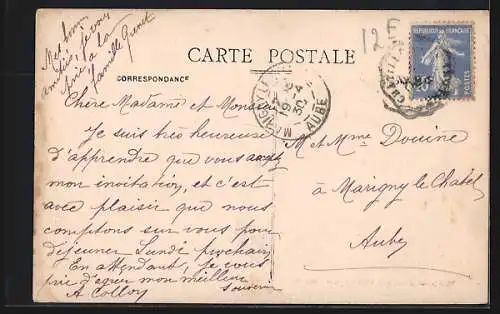 Mes bons
amitiés, je vous
prie à la
famille Grenet
12
CARTE POSTALE
CORRESPONDANCE
REPUBLIQUE FRANÇAISE
POSTES
MARIGNY-LE
19
30
AUBE
Chère Madame et Monsieur
Je suis très heureuse
d'apprendre que vous avez
mon invitation, et c'est
avec plaisir que nous
comptons sur vous pour
déjeuner Lundi prochain
En attendant, je vous
prie d'agréer mon meilleur
souvenir
A Colloy
M et Mme Douine
à Marigny le Chatel
Aube